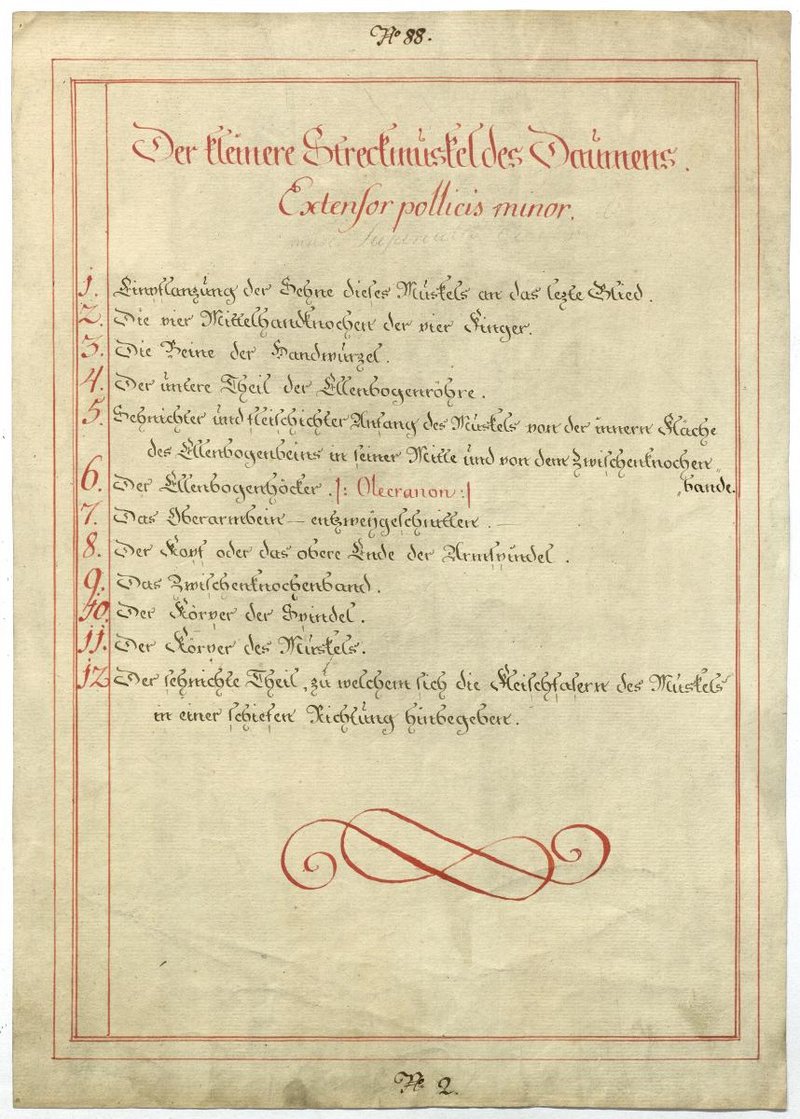 No 88.
Der kleinere Streckmuskel des Daumens.
Extensor pollicis minor.
1. Einpflanzung der Sehne dieses Muskels an das lezte Glied.
2. Die vier Mittelhandknochen der vier Finger.
3. Die Beine der Handwurzel.
4. Der untere Theil der Ellenbogenröhre.
5. Sehnichter und fleischichter Anfang des Muskels von der innern Fläche
des Ellenbogenbeins in seiner Mitte und von dem Zwischenknochen„
„bande.
6. Der Ellenbogenhöcker. |: Olecranon :|
7. Das Oberarmbein — entzweygeschnitten. —
8. Der Kopf oder das obere Ende der Armspindel.
9. Das Zwischenknochenband.
10. Der Körper der Spindel.
11. Der Körper des Muskels.
12 Der sehnichte Theil, zu welchem sich die Fleischfasern des Muskels
in einer schiefen Richtung hinbegeben.
N. 2.